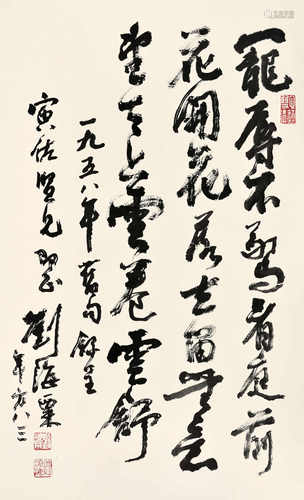 寵辱不驚看庭前
花開花落去留無意
望天上雲卷雲舒
一九五八年舊句錄呈
寅賢兄正劉海粟
年方八三